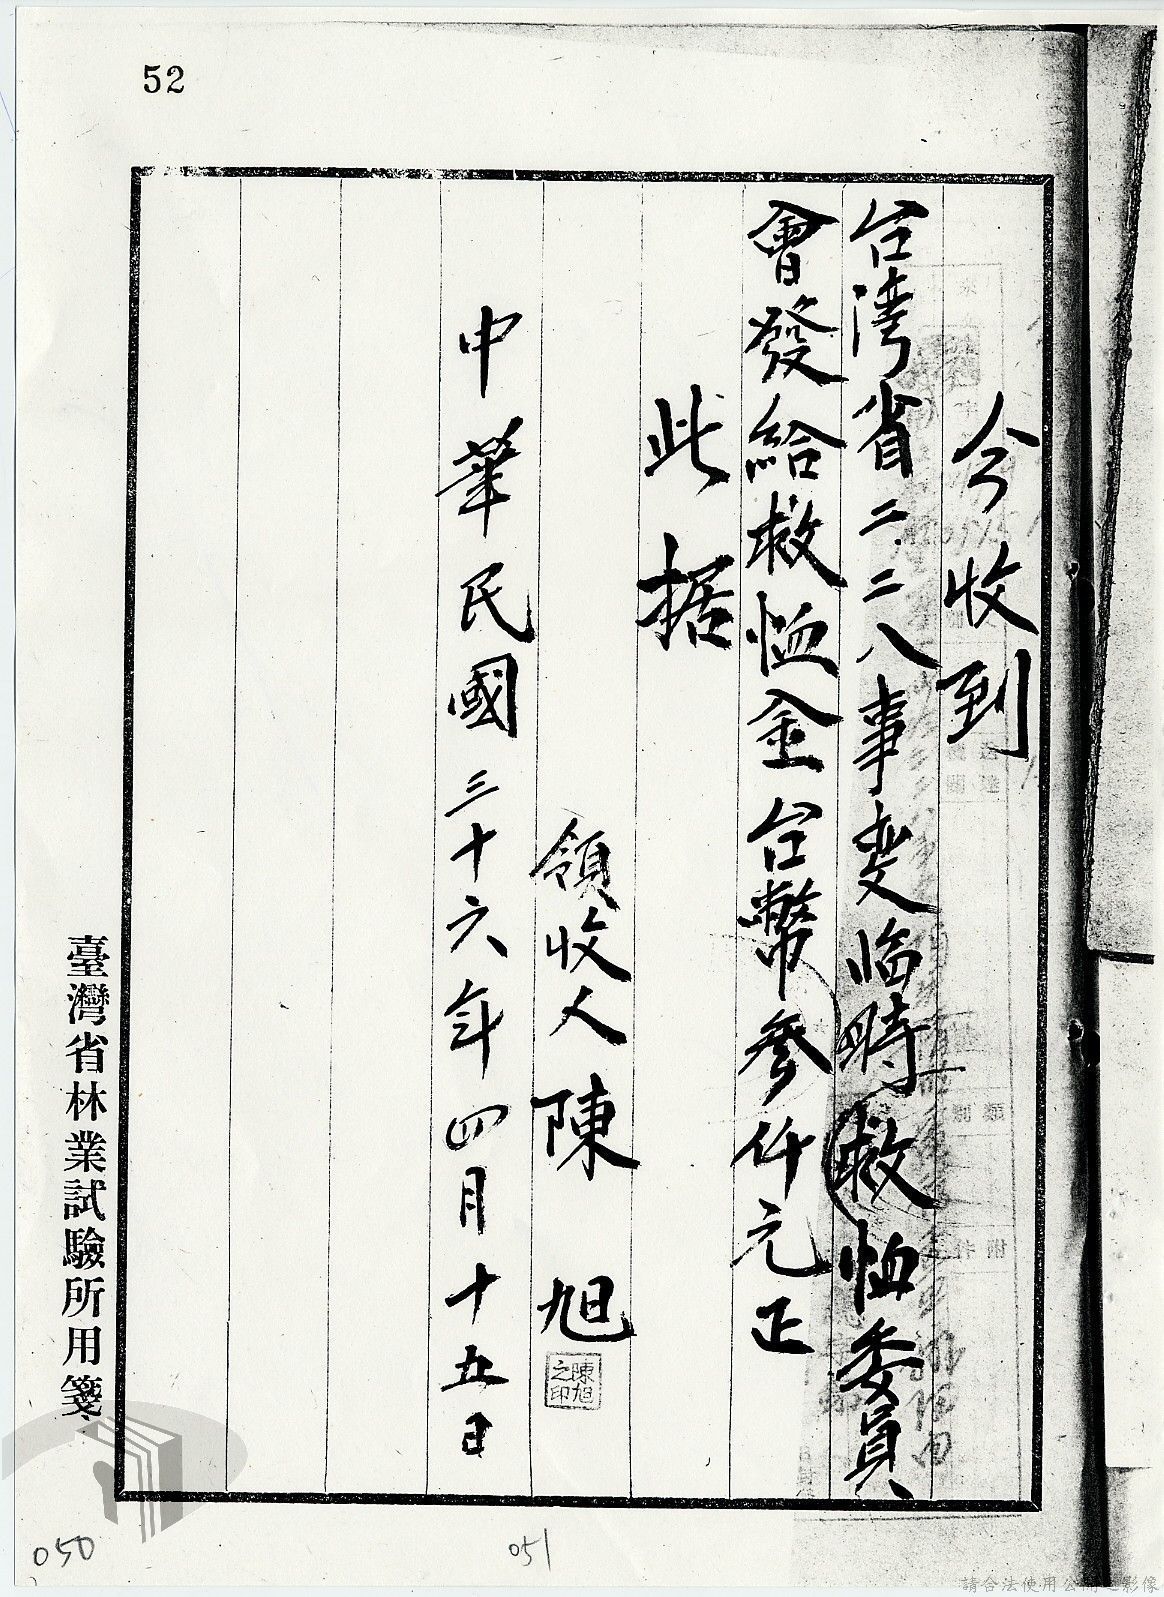 52
今收到
台湾省二.二八事变临時救恤委員
會發給救恤金台幣參仟元正
此据
領收人陳旭
陳旭之印
中華民國三十六年四月十五日
臺灣省林業試驗所用箋
050
051
請合法使用公開之影像